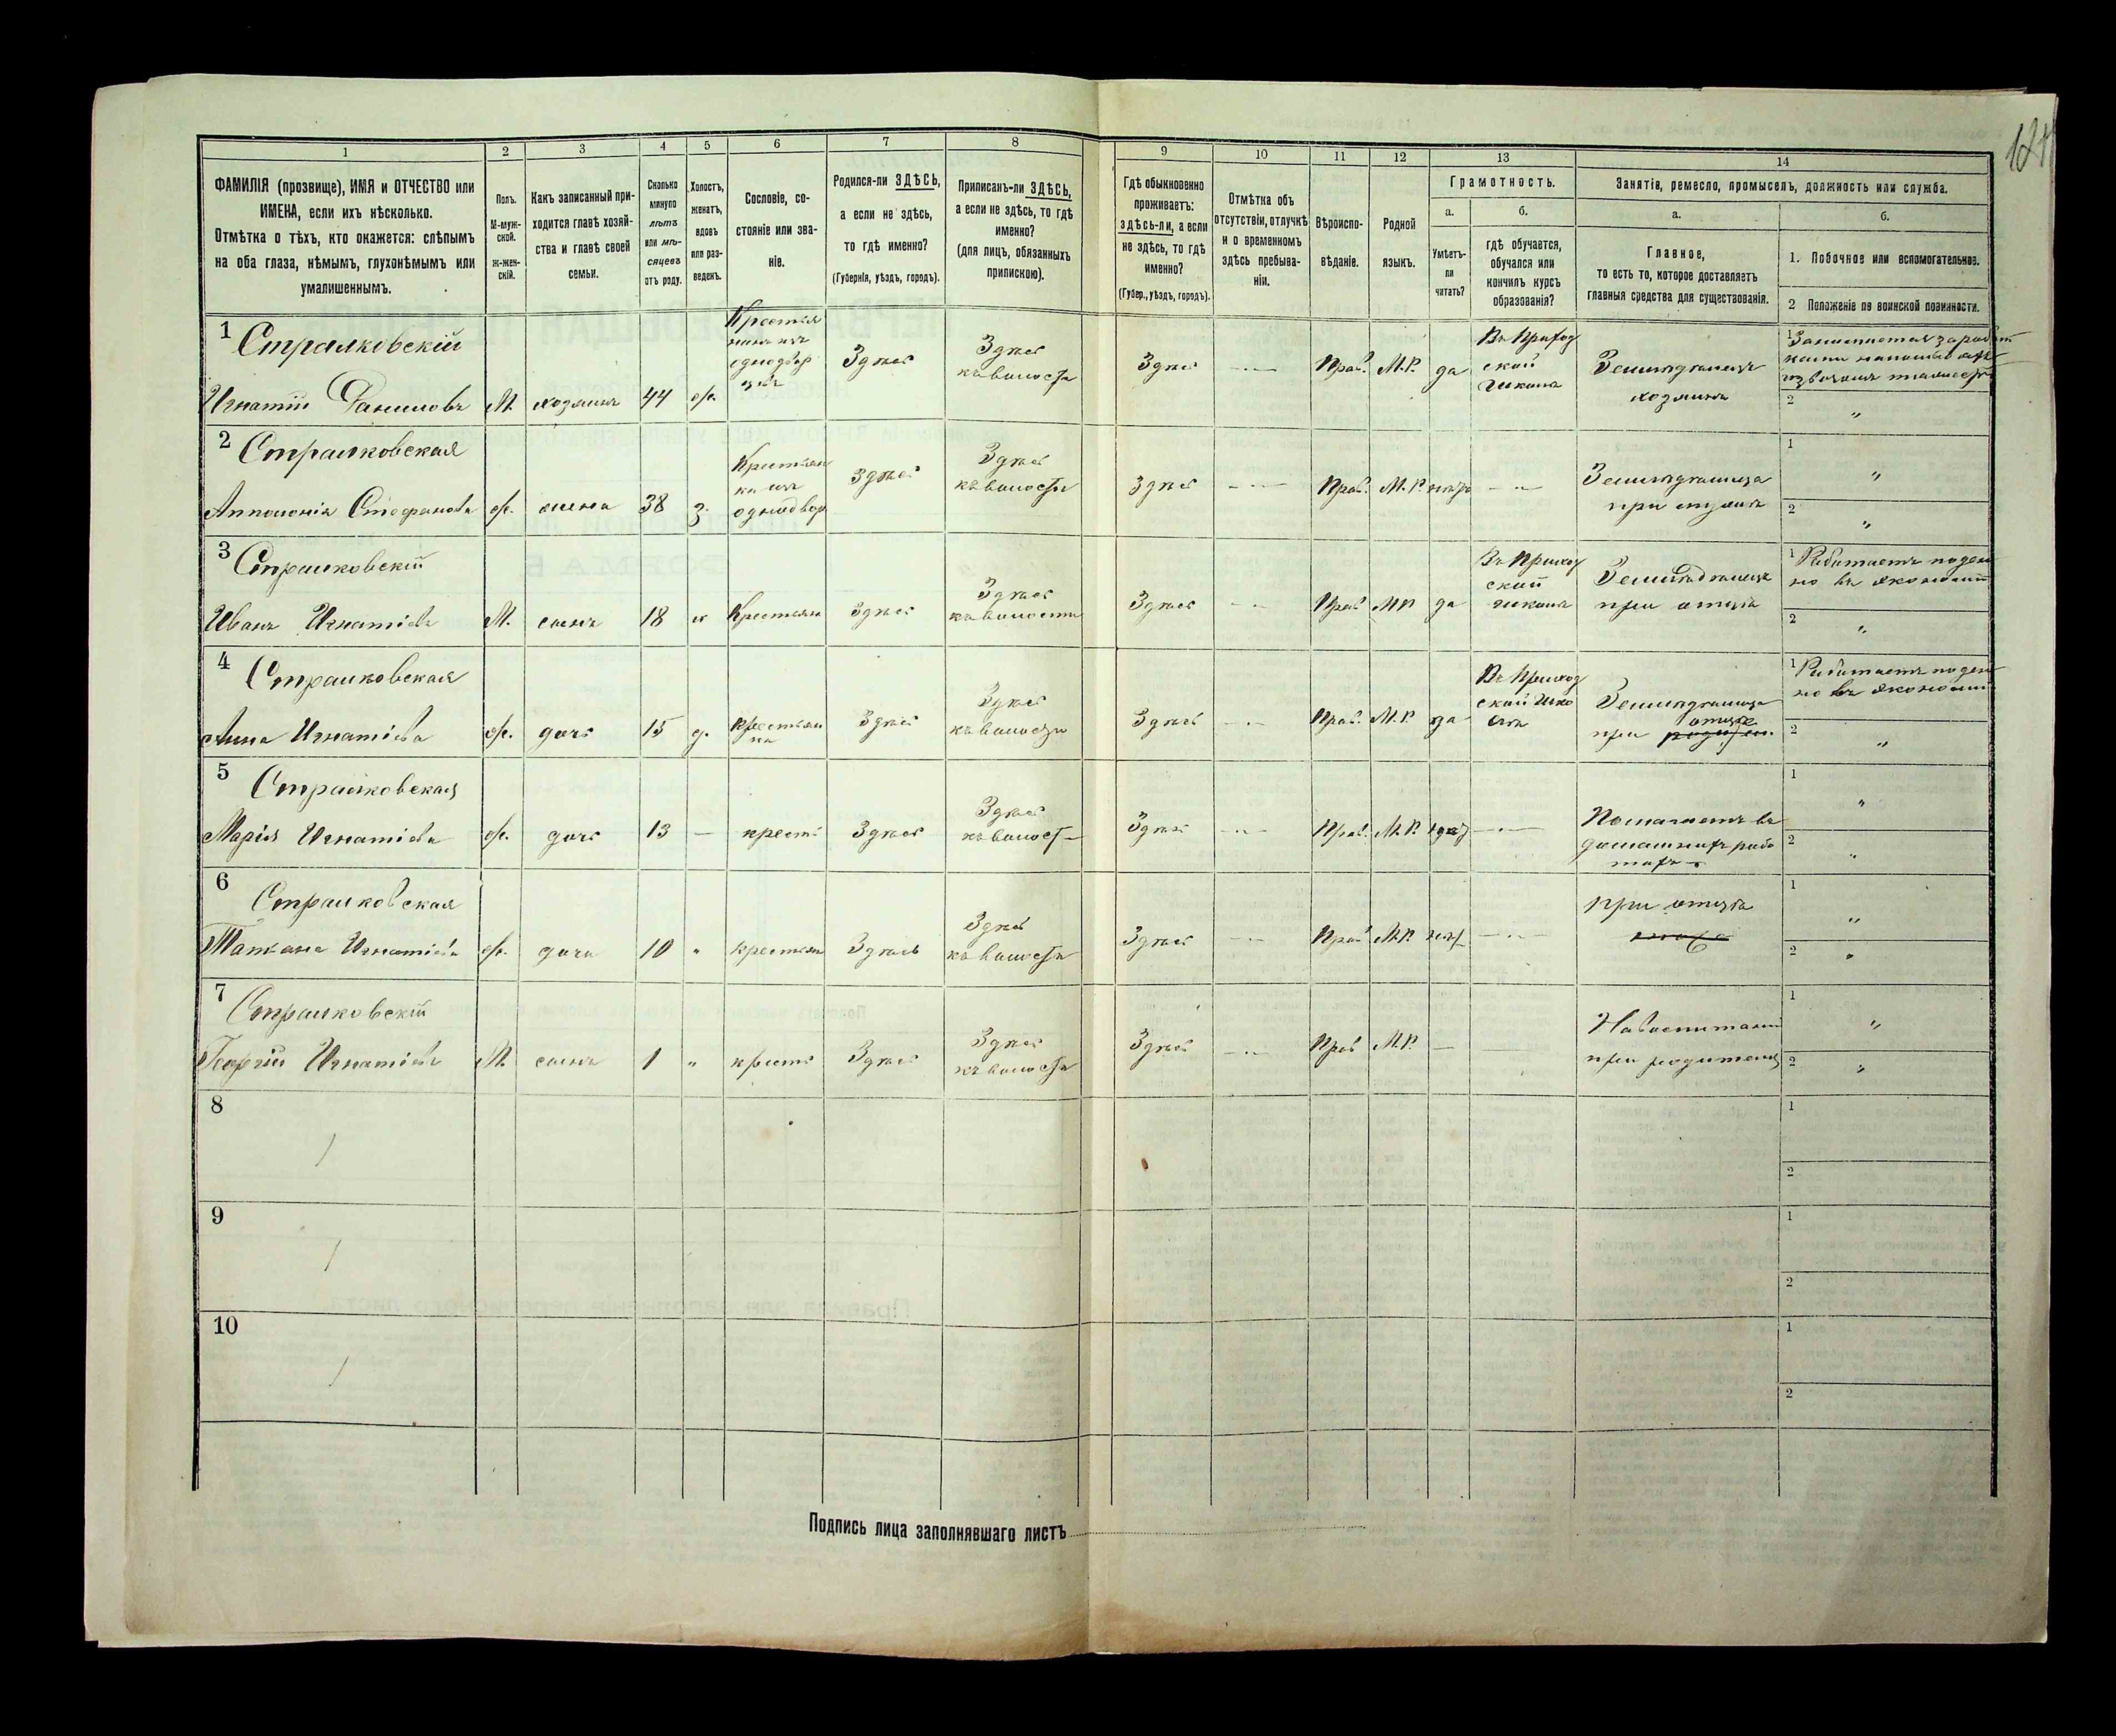 1 2 3 4 5 6 7 8 9 10 11 12 13 14
ФАМИЛІЯ (прозвище), ИМЯ и ОТЧЕСТВО или
ИМЕНА, если ихъ нѣсколько.
Отмѣтка о тѣхъ, кто окажется: слѣпымъ
на оба глаза, нѣмымъ, глухонѣмымъ или
умалишеннымъ.
Полъ.
М-муж-
ской.
Ж-жен-
скій.
Какъ записанный при-
ходится главѣ хозяй-
ства и главѣ своей
семьи.
Сколько
минуло
лѣтъ
или мѣ-
сяцевъ
отъ роду.
Холостъ,
женатъ,
вдовъ
или раз-
веденъ.
Сословіе, со-
стояніе или зва-
ніе.
Родился-ли ЗДѢСЬ,
а если не здѣсь,
то гдѣ именно?
(Губернія, уѣздъ, городъ).
Приписанъ-ли ЗДѢСЬ,
а если не здѣсь, то гдѣ
именно?
(для лицъ, обязанныхъ
припискою).
Гдѣ обыкновенно
проживаетъ:
здѣсь-ли, а если
не здѣсь, то гдѣ
именно?
(Губер., уѣздъ, городъ).
Отмѣтка объ
отсутствіи, отлучкѣ
и о временномъ
здѣсь пребыва-
ніи.
Вѣроиспо-
вѣданіе.
Родной
языкъ.
Грамотность.
а.
Умѣетъ-
ли
читать?
б.
гдѣ обучается,
обучался или
кончилъ курсъ
образованія?
Занятіе, ремесло, промыселъ, должность или служба.
а.
Главное,
то есть то, которое доставляетъ
главныя средства для существованія.
б.
1. Побочное или вспомогательное.
2 Положеніе по воинской повинности.
1 Стралковскій
Игнатій Даниловъ М. хозяинъ 44 ж.
Крестья
нинъ изъ
однодвор
цевъ
Здѣсь
Здѣсь
къ волости
Здѣсь
Прав. М.Р. да
Въ Приход
ской
школѣ
Земледѣлецъ
хозяинъ
1
2 "
2 Стралковская
Апполонія Стефанова ж. жена 38 з.
Крестьян
ка изъ
однодвор
Здѣсь
Здѣсь
къ волости
Здѣсь
Прав. М.Р. нѣтъ
Земледѣлица
при мужѣ
1 "
2 "
3 Стралковскій
Иванъ Игнатіевъ М. сынъ 18 х Крестьян Здѣсь
Здѣсь
къ волости
Здѣсь
Прав МР да
Въ Приход
ской
школѣ
Земледѣлецъ
при отцѣ
1 Работаетъ поден
но въ экономіи
2 "
4 Стралковская
Анна Игнатіева ж. дочь 15 д.
Крестьян
ка
Здѣсь
Здѣсь
къ волости
Здѣсь
Прав. М.Р. да
Въ Приход
ской шко
лѣ
Земледѣлица
при отцѣ
1 Работаетъ поден
но въ экономіи
2 "
5 Стралковская
Марія Игнатіева ж. дочь 13 — крест Здѣсь
Здѣсь
къ волост
Здѣсь
Прав. М.Р.
Помогаетъ въ
домашнихъ рабо
тахъ
1 "
2 "
6 Стралковская
Татьяна Игнатіева ж. дочь 10 " крестьян Здѣсь
Здѣсь
къ волости
Здѣсь
Прав М.Р. нѣт
при отцѣ
1 "
2 "
7 Стралковскій
Георгій Игнатіевъ М. сынъ 1 " крест Здѣсь
Здѣсь
къ волости
Здѣсь
Прав М.Р. —
На воспитаніи
при родителяхъ
1 "
2 "
8
1
2
9
1
2
10
1
2
Подпись лица заполнявшаго листъ